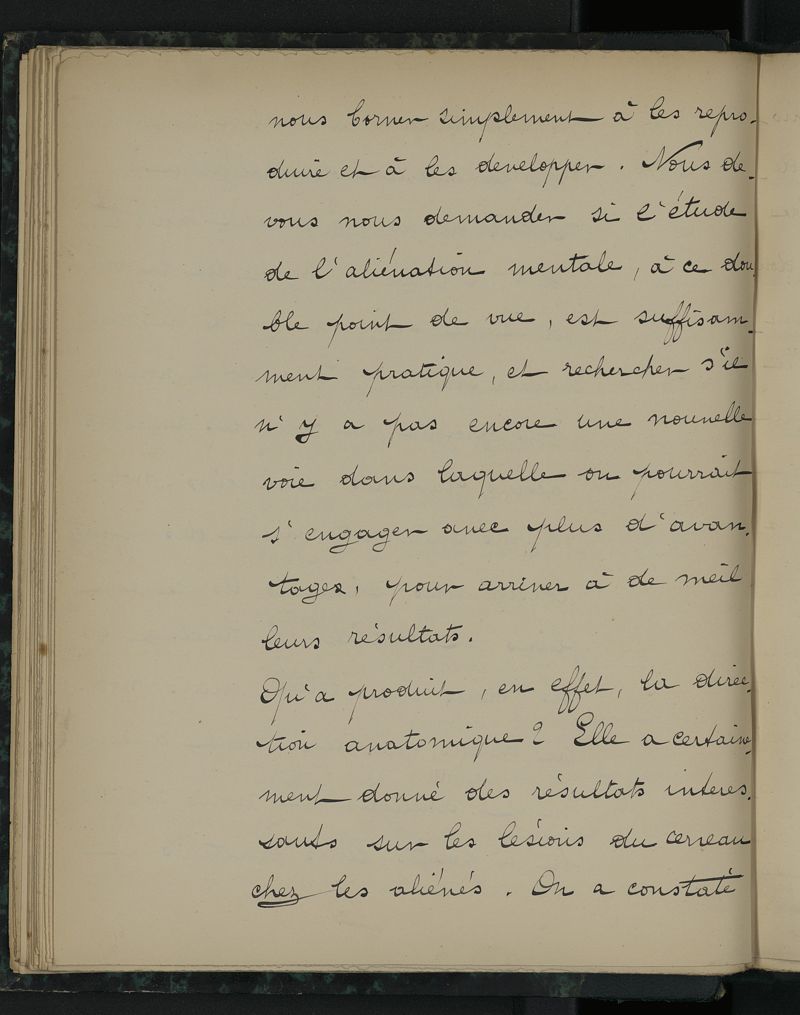 nous borner simplement à les repro-
duire et à les developper. Nous de-
vous nous demander si l'étude
de l'aliénation mentale, à ce dou
ble point de vue, est suffisam-
ment pratique, et rechercher s'il
n'y a pas encore une nouvelle
voie dans laquelle on pourrait
s'engager avec plus d'avan-
tages, pour arriver à de meil
leurs résultats.
Qu'a produit, en effet, la direc-
tion anatomique? Elle a certaine-
ment donné des résultats interes-
sants sur les lésions du cerveau
chez les aliénés. On a constaté